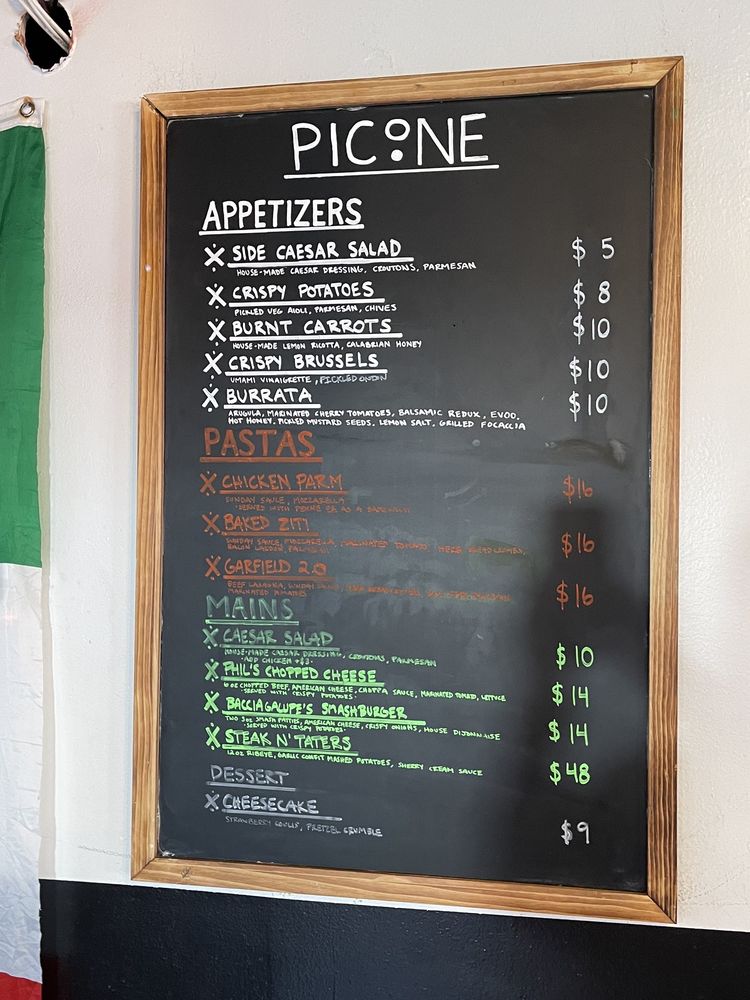 PICONE
APPETIZERS
SIDE CAESAR SALAD $5
HOUSE-MADE CAESAR DRESSING, CROUTONS, PARMESAN
CRISPY POTATOES $8
PICKLED VEG AIOLI, PARMESAN, CHIVES
BURNT CARROTS $10
HOUSE-MADE LEMON RICOTTA, CALABRIAN HONEY
CRISPY BRUSSELS $10
UMAMI VINAIGRETTE, PICKLED ONION
BURRATA $10
ARUGULA, MARINATED CHERRY TOMATOES, BALSAMIC REDUX, EVOO,
HOT HONEY, PICKLED MUSTARD SEEDS, LEMON SALT, GRILLED FOCACCIA
PASTAS
CHICKEN PARM $16
SUNDAY SAUCE, MOZZARELLA
SERVED WITH PENNE OR AS A
BAKED ZITI $16
SUNDAY SAUCE, MOZZARELLA, MARINATED TOMATO, HERB BREADCRUMBS,
BACON LARDON,
GARFIELD 2.0 $16
BEEF LASAGNA, SUNDAY
MARINATED TOMATOES
MAINS
CAESAR SALAD $10
HOUSE-MADE CAESAR DRESSING, CROUTONS, PARMESAN
·ADD CHICKEN +$3·
PHIL'S CHOPPED CHEESE $14
6 OZ CHOPPED BEEF, AMERICAN CHEESE, CHOPPA SAUCE, MARINATED TOMATO, LETTUCE
·SERVED WITH CRISPY POTATOES·
BACCIAGALUPE'S SMASHBURGER $14
TWO 3OZ SMASH PATTIES, AMERICAN CHEESE, CRISPY ONIONS, HOUSE DIJONNAISE
·SERVED WITH CRISPY POTATOES·
STEAK N' TATERS $48
12OZ RIBEYE, GARLIC CONFIT MASHED POTATOES, SHERRY CREAM SAUCE
DESSERT
CHEESECAKE $9
STRAWBERRY COULIS, PRETZEL CRUMBLE